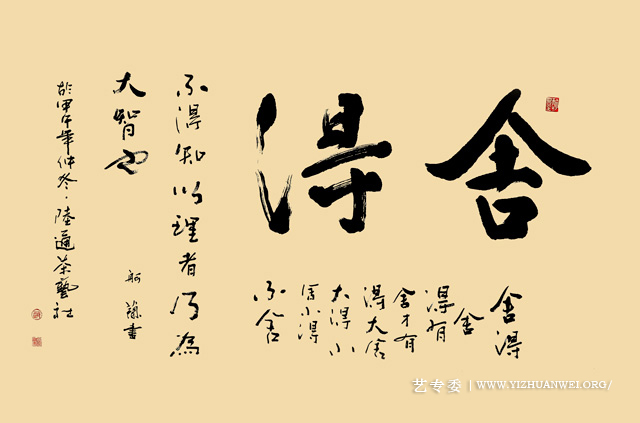 舍得
舍得
舍
得有
舍才有
得大舍
大得小
舍小得
不舍
不得知此理者乃為
大智也
書
於甲午年仲冬·陸茶藝社
艺专委 | WWW.YIZHUANWEI.ORG/